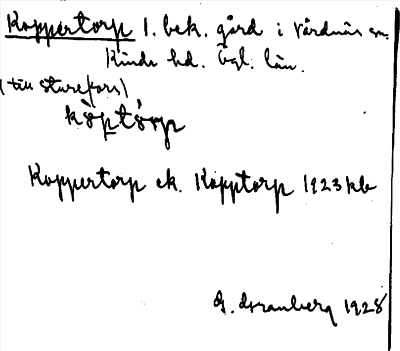 Koppertorp 1. bek. gård i Vårdnäs sn.
Kinds hd. Ögl. län.
(till Sturefors)
köptórp
Koppertorp ek. Kopptorp 1923 kb
G. Franberg 1928